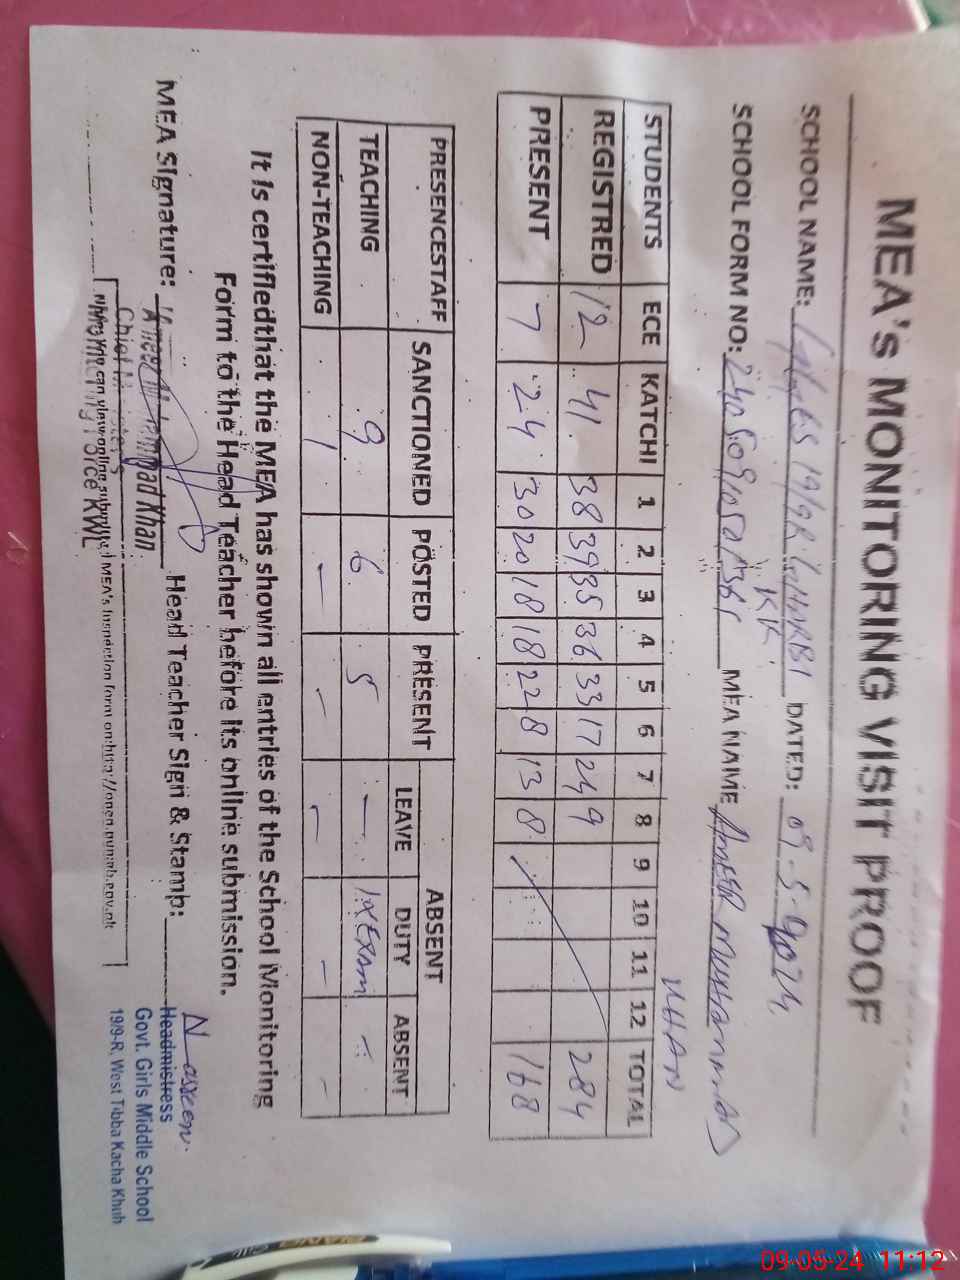 MEA's MONITORING VISIT PROOF
SCHOOL NAME: 19/9R DATED: 09-5-2024
KK
SCHOOL FORM NO: MEA NAME AMEER MUHAMMAD
KHAN
STUDENTS ECE KATCHI 1 2 3 4 5 6 7 8 9 10 11 12 TOTAL
REGISTRED 12 41 38 39 35 36 33 17 24 9 284
PRESENT 7 24 30 20 18 18 22 8 13 8 168
PRESENCESTAFF SANCTIONED POSTED PRESENT ABSENT
LEAVE DUTY ABSENT
TEACHING 9 6 5 — 1xExam -
NON-TEACHING 1 - - - - -
It is certifiedthat the MEA has shown all entries of the School Monitoring
Form to the Head Teacher before its online submission.
MEA Signature: Head Teacher Sign & Stamp:
Ameer Muhammad Khan
Chief Ministers
Monitoring Force KWL
Now you can view online submitted MEA's Inspection form on:http://open.punjab.gov.pk
Nasreen
Headmistress
Govt. Girls Middle School
19/9-R, West Tibba Kacha Khuh
09-05-24 11:12